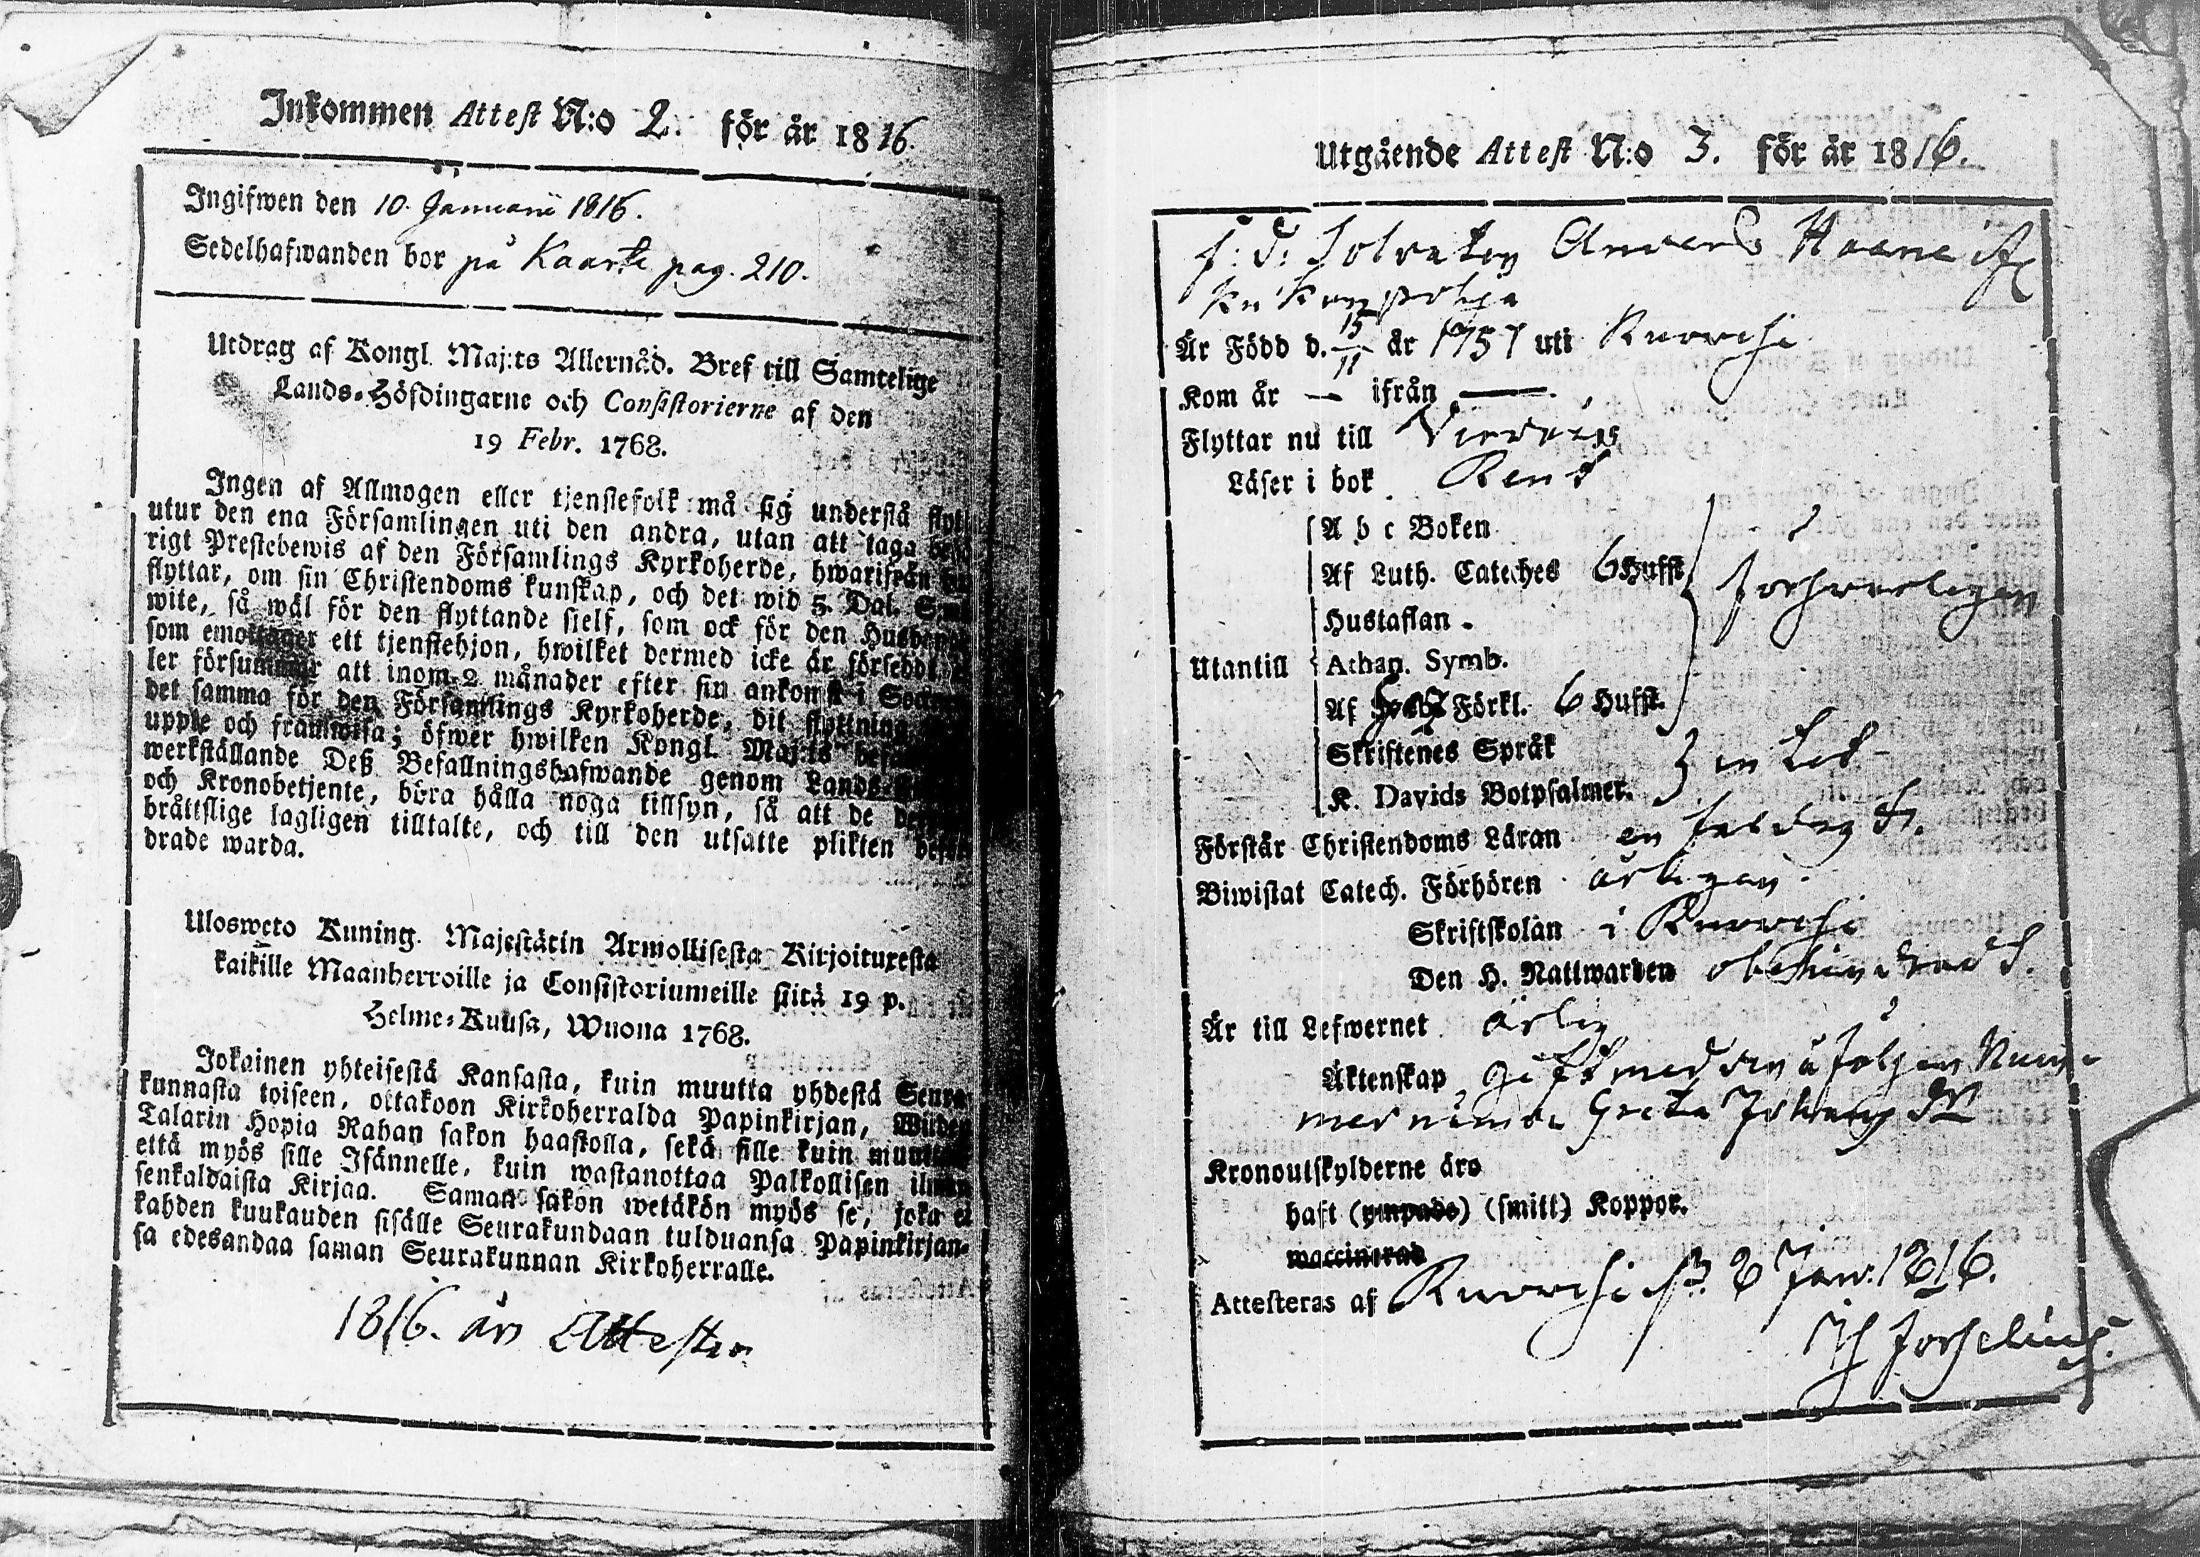 Inkommen Attest N:o 2. för år 1816.
Ingifwen den 10. Januarii 1816.
Sedelhafwanden bor på Kaarte pag. 210.
Utdrag af Kongl. Maj:ts Allernåd. Bref till Samtelige
Lands-Höfdingarne och Consistorierne af den
19 Febr. 1768.
Ingen af Allmogen eller tjenstefolk må sig understå
utur den ena Församlingen uti den andra, utan att taga
rigt Prestebewis af den Församlings Kyrkoherde, hwarifrån
flyttar, om sin Christendoms kunskap, och det wid 5. Dal. S.
wite, så wäl för den flyttande sielf, som ock för den
som emottager ett tjenstehjon, hwilket dermed icke är försedt
ler försummar att inom 2 månader efter sin ankomst i
det samma för den Församlings Kyrkoherde, dit flyttning
uppte och framwisa; öfwer hwilken Kongl. Maj:ts
werkställande Deß Befallningshafwande genom Lands-
och Kronobetjente, böra hålla noga tillsyn, så att de
bråttslige lagligen tilltalte, och till den utsatte plikten
drade warda.
Ulosweto Kuning. Majestätin Armollisesta Kirjoituxesta
kaikille Maanherroille ja Consistoriumeille siitä 19 p.
Helme-Kuusa, Wuona 1768.
Jokainen yhteisestä Kansasta, kuin muutta yhdestä Seura-
kunnasta toiseen, ottakoon Kirkoherralda Papinkirjan, Wiiden
Talarin Hopia Rahan sakon haastolla, sekä sille kuin muutta
että myös sille Isännelle, kuin wastanottaa Palkollisen ilman
senkaldaista Kirjaa. Saman sakon wetäkön myös se, joka ei
kahden kuukauden sisälle Seurakundaan tulduansa Papinkirjan-
sa edesandaa saman Seurakunnan Kirkoherralle.
1816. års Attester
Utgående Attest N:o 3. för år 1816.
f: d: Soldaten Anders Haane if
Kuikanpohja
Är Född d. 15/11 år 1757 uti Ruovesi
Kom år — ifrån —
Flyttar nu till Virdois
Läser i bok Rent
A b c Boken
Af Luth. Cateches 6 Hufst
Hustaflan
Utantill Athan. Symb.
Af Förkl. 6 Hufst.
Försvarligen
Skriftenes Språk
K. Davids Botpsalmer.
Förstår Christendoms Läran
Biwistat Catech. Förhören årligen
Skriftskolan i Ruovesi
Den H. Nattwarden obehindrad
Är till Lefwernet ärlig
Äktenskap gift med
Greta
Kronoutskylderne äro
haft (ympade) (smitt) Koppor.
waccinerad
Attesteras af Ruovesi 2 Jan: 1816.